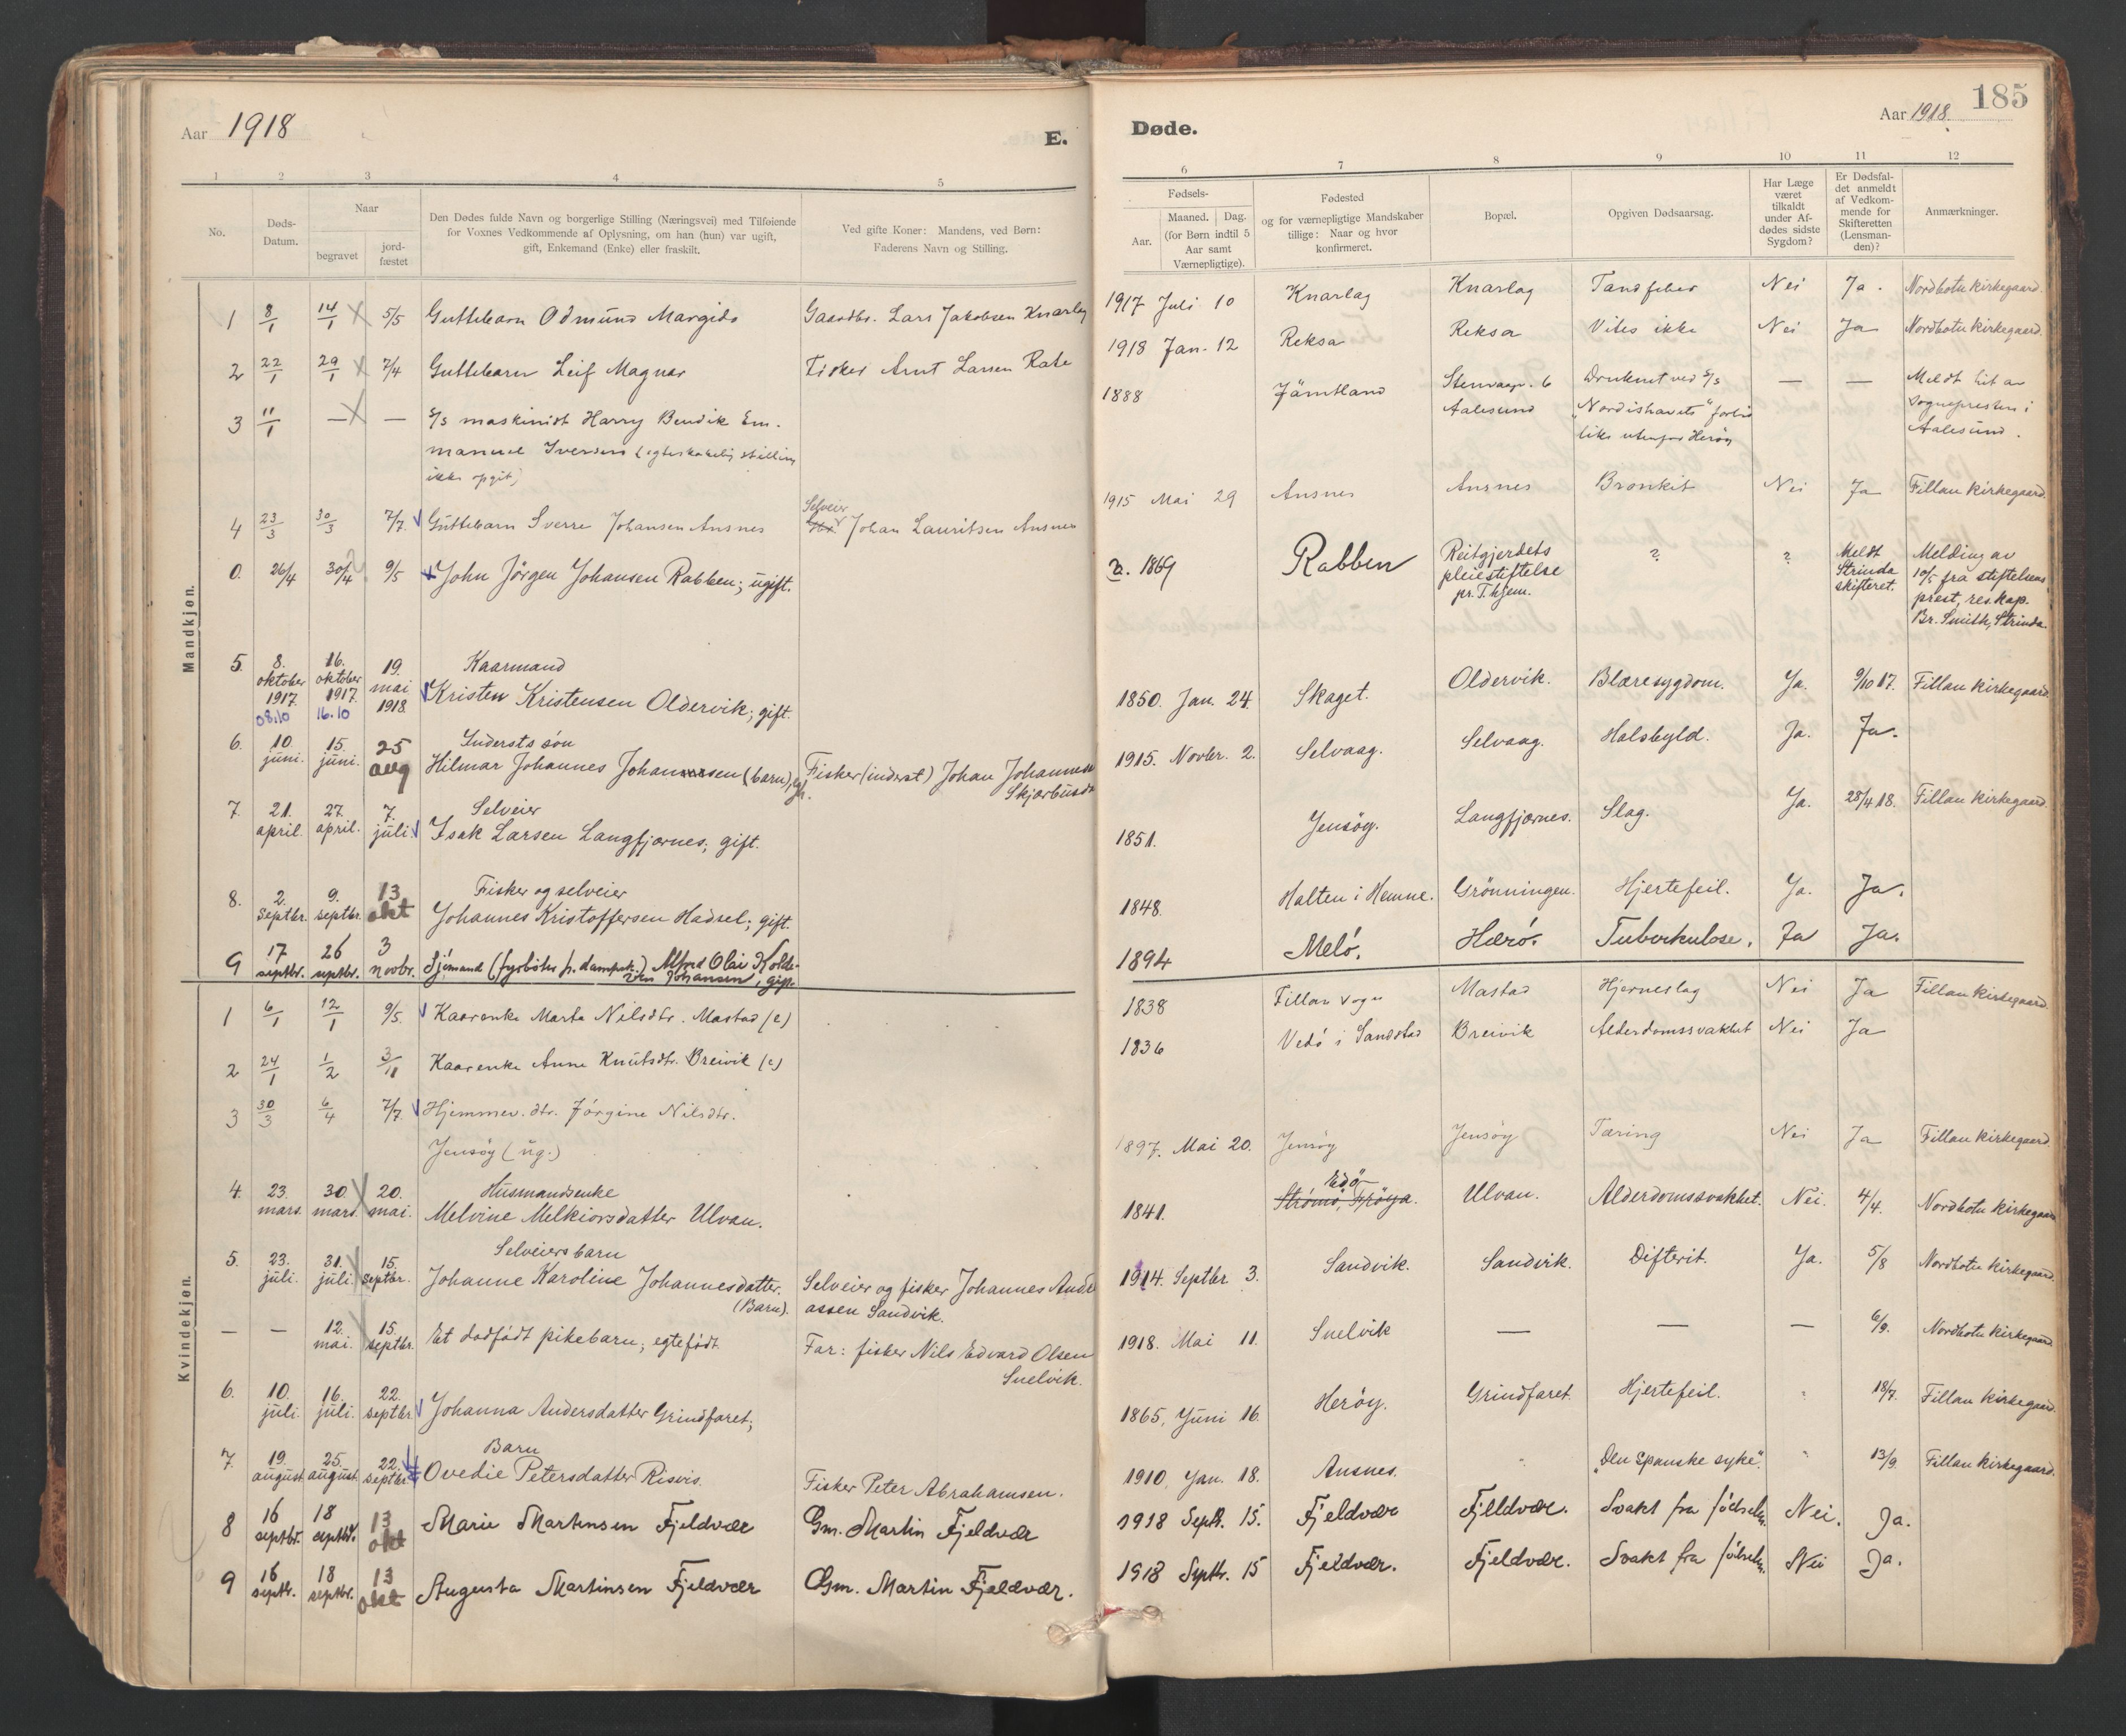 Aar 1918
E.
Døde.
Aar 1918.
185
1 2 3 4 5 6 7 8 9 10 11 12
No.
Døds-Datum.
Naar
begravet
jord-fæstet
Den Dødes fulde Navn og borgerlige Stilling (Næringsvei) med Tilføiende
for Voxnes Vedkommende af Oplysning, om han (hun) var ugift,
gift, Enkemand (Enke) eller fraskilt.
Ved gifte Koner: Mandens, ved Børn:
Faderens Navn og Stilling.
Fødsels-
Aar.
Maaned. Dag.
(for Børn indtil 5
Aar samt
Værnepligtige).
Fødested
og for værnepligtige Mandskaber
tillige: Naar og hvor
konfirmeret.
Bopæl.
Opgiven Dødsaarsag.
Har Læge
været
tilkaldt
under Af-
dødes sidste
Sygdom?
Er Dødsfal-
det anmeldt
af Vedkom-
mende for
Skifteretten
(Lensman-
den)?
Anmærkninger.
Mandkjøn.
1 8/1 14/1 5/5 Guttebarn Odmund Margido Gaardbr. Lars Jakobsen Knarlag 1917 Juli 10 Knarlag Knarlag Tandfeber Nei Ja. Nordbotn kirkegaard.
2 22/1 29/1 7/4 Guttebarn Leif Magnar Fisker Arnt Larsen 1918 Jan. 12 Reksa Reksa Vites ikke Nei Ja Nordbotn kirkegaard.
3 11/1 — — S/S maskinist Harry Bendik Em- 1888 Jämtland Stenvaagn. 6 Druknet ved S/S — — Meldt hit av
manuel Iversen (egteskabelig stilling Aalesund "Nordishavets" forlis sognepresten i
ikke opgit) utenfor Herøy Aalesund.
4 23/3 30/3 7/7 Guttebarn Sverre Johansen Ansnes Selveier Johan Lauritsen Ansnes 1915 Mai 29 Ansnes Ansnes Bronkit Nei Ja Fillan kirkegaard.
0. 26/4 30/4 9/5 John Jörgen Johansen Rabben; ugift. 1869 Rabben Reitgjerdets ? ? Meldt Melding av
pleiestiftelse Strinda 10/5 fra stiftelsens
pr. T.hjem. skifteret. prest, res. kap.
Br. Smith, Strinda.
5. 8. oktober 1917. 16. oktober 1917. 19. mai 1918. Kaarmand
08.10 16.10 Kristen Kristensen Oldervik; gift. 1850. Jan. 24. Skaget. Oldervik. Blæresygdom. Ja. 9/10 17. Fillan kirkegaard.
6. 10. juni. 15. juni. 25 aug Inderstssön
Hilmar Johannes Johannessen (barn), Fisker (inderst) Johan Johannesen 1915. Novbr. 2. Selvaag. Selvaag. Halsbyld. Ja. Ja.
7. 21. april. 27. april. 7. juli Selveier
Isak Larsen Langfjærnes; gift. 1851. Jensöy. Langfjærnes. Slag. Ja. 28/4 18. Fillan kirkegaard.
8. 2. septbr. 9. septbr. 13 okt Fisker og selveier
Johannes Kristoffersen Hadsel; gift. 1848. Halten i Hemne. Grönningen. Hjertefeil. Ja. Ja.
9 17 septbr. 26 septbr. 3 novbr. Sjømand (fyrbøter p. dampsk.) Alfred Olai Kolbe-
Johansen, gift. 1894 Melö. Herö. Tuberkulose. Ja Ja.
Kvindekjøn.
1 6/1 12/1 9/5. Kaarenke Marta Nilsdtr. Mastad (e) 1838 Fillan sogn Mastad Hjerneslag Nei Ja Fillan kirkegaard.
2 24/1 1/2 3/11 Kaarenke Anne Knutsdtr. Breivik (e) 1836 Vedö i Sandstad Breivik Alderdomssvakhet Nei Ja
3 30/3 6/4 7/7. Hjemmev. dtr. Jörgine Nilsdtr.
Jensöy (ug.) 1897. Mai 20. Jensöy Jensöy Tæring Nei Ja Fillan kirkegaard
4. 23. mars. 30. mars. 20. mai. Husmandsenke Edö
Melvine Melkiorsdatter Ulvan. 1841. Strömö, Fröya. Ulvan. Alderdomssvakhet. Nei. 4/4. Nordbotn kirkegaard
5. 23. juli. 31. juli. 15. septbr. Selveiersbarn
Johanne Karoline Johannesdatter. Selveier og fisker Johannes Andre 1914. Septbr. 3. Sandvik. Sandvik. Difterit. Ja. 5/8 Nordbotn kirkegaard.
(Barn). assen Sandvik.
— — 12. mai. 15. septbr. Et dødfödt pikebarn; egtefödt. Far: fisker Nils Edvard Olsen 1918. Mai 11. Snelvik — — — 6/9. Nordbotn kirkegaard.
Snelvik.
6. 10. juli. 16. juli. 22. septbr. Johanna Andersdatter Grindfaret; 1865, Juni 16. Heröy. Grindfaret. Hjertefeil. 18/7. Fillan kirkegaard.
7. 19. august 25. august. 22. septbr. Barn
Ovedie Petersdatter Fisker Peter Abrahamsen. 1910, Jan. 18. Ansnes. "Den spanske syke". 13/9. Fillan kirkegaard.
8 16 septbr. 18 septbr. 13 okt Marie Martinsen Fjeldvær Gm. Martin Fjeldvær 1918 Septb. 15. Fjeldvær Fjeldvær. Svakt fra födselen. Nei. Ja.
9 16 septbr. 18 septbr. 13 okt Augusta Martinsen Fjeldvær Gm. Martin Fjeldvær. 1918 Septb. 15 Fjeldvær. Fjeldvær. Svakt fra födselen. Nei Ja.